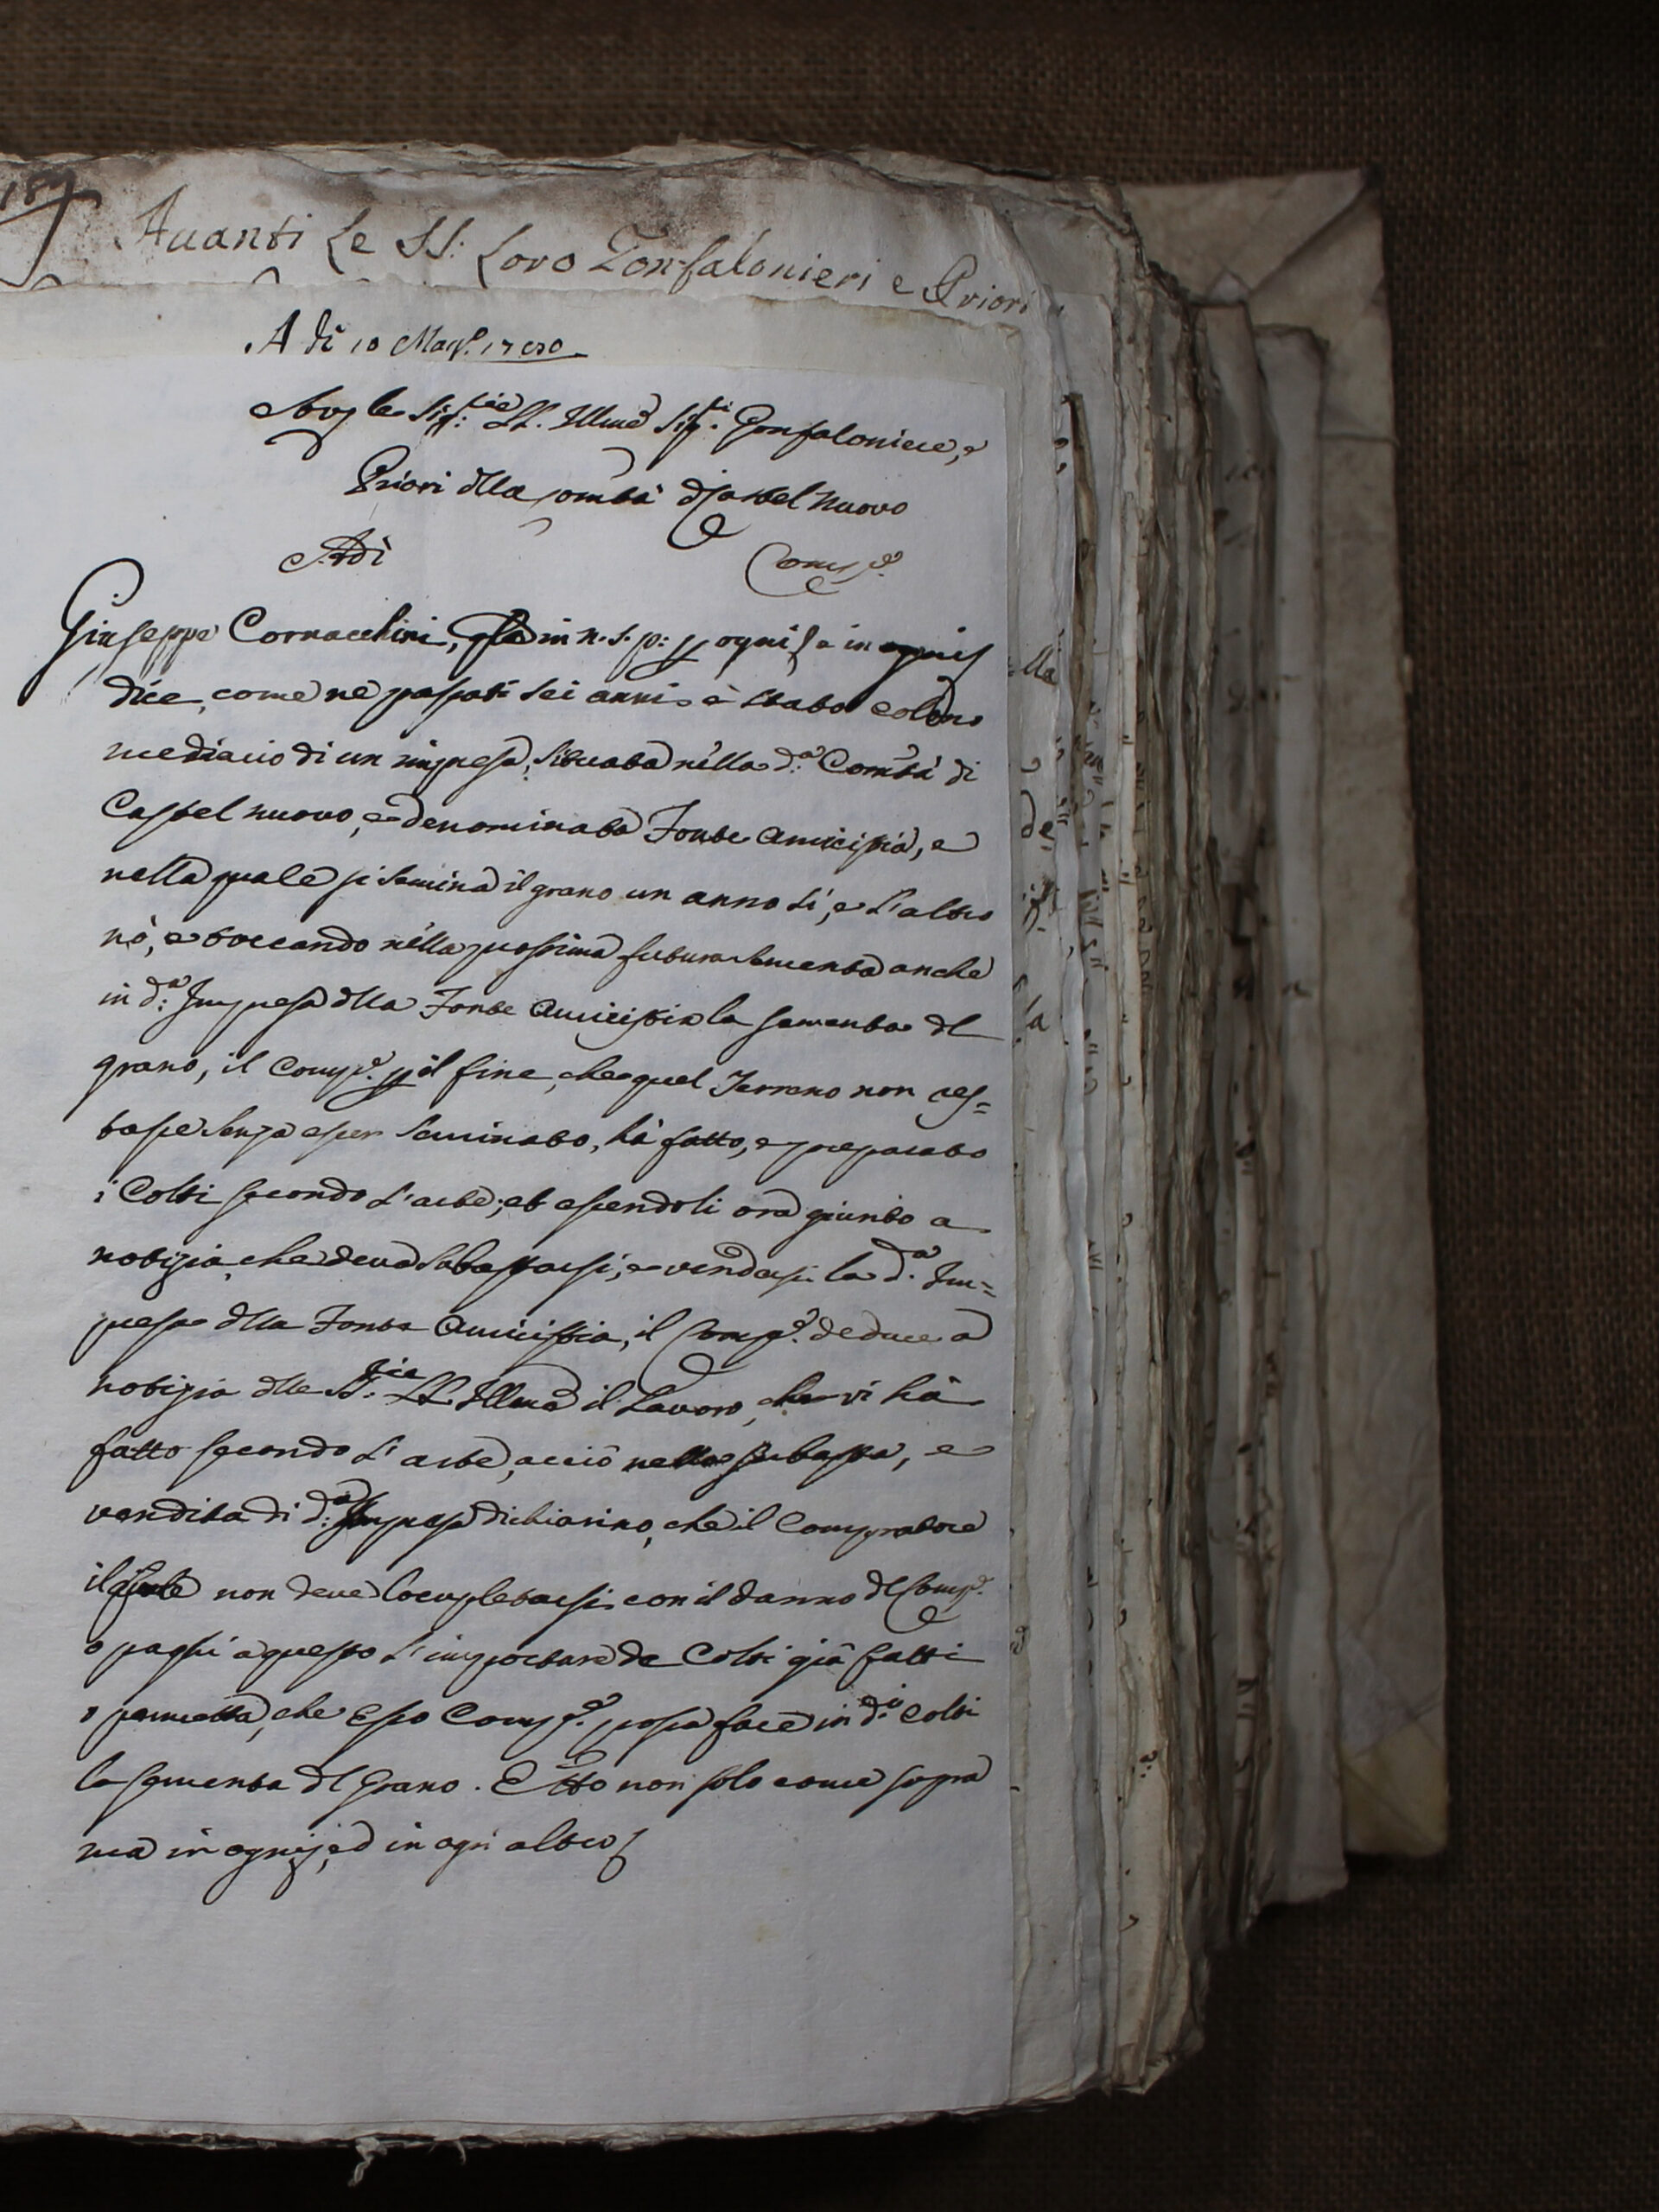 187
Auanti Le SS: Loro Gonfalonieri e Priori
A dì 10 Magg.
le Sig:rie LL. Illme Sig:ri Gonfaloniere, e
Priori dlla Comtà di Castel Nuovo
Adì Comp.e
Giuseppe Cornacchini, in n. s. p: ogni
dice, come ne passati sei anni è stato colono
mediario di un impresa, situata nella d:a Comtà di
Castel nuovo, e denominata Fonte Amicissia, e
nella quale si semina il grano un anno sì, e l'altro
nò, e toccando nella prossima futura sementa anche
in d:a Impresa dlla Fonte Amicissia la sementa dl
grano, il Comp.e p il fine, che quel Terreno non res=
tasse senza esser seminato, hà fatto, e preparato
i Colti secondo l'arte; et essendoli ora giunto a
notizia, che deva subastarsi, e vendersi la d.a Im=
presa dlla Fonte Amicissia, il Comp.e deduce a
notizia dlle SS:rie LL. Illme il Lavoro, che vi hà
fatto secondo l'arte, acciò nella subasta, e
vendita di d:a Impresa dichiarino, che il Compratore
il quale non deve locupletarsi con il danno dl Comp.e
o paghi a questo l'importare de Colti già fatti
o permetta, che Esso Comp.e possa fare in d:i colti
la sementa dl Grano. E tto non solo come sopra
ma in ogni, ed in ogni altro
lla
de
la